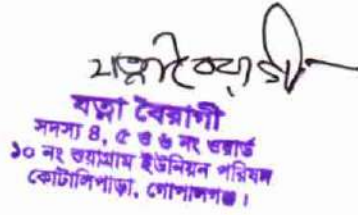 যত্না বৈরাগী
যত্না বৈরাগী
সদস্য ৪, ৫ ও ৬ নং ওয়ার্ড
১০ নং ওয়াগ্রাম ইউনিয়ন পরিষদ
কোটালিপাড়া, গোপালগঞ্জ।